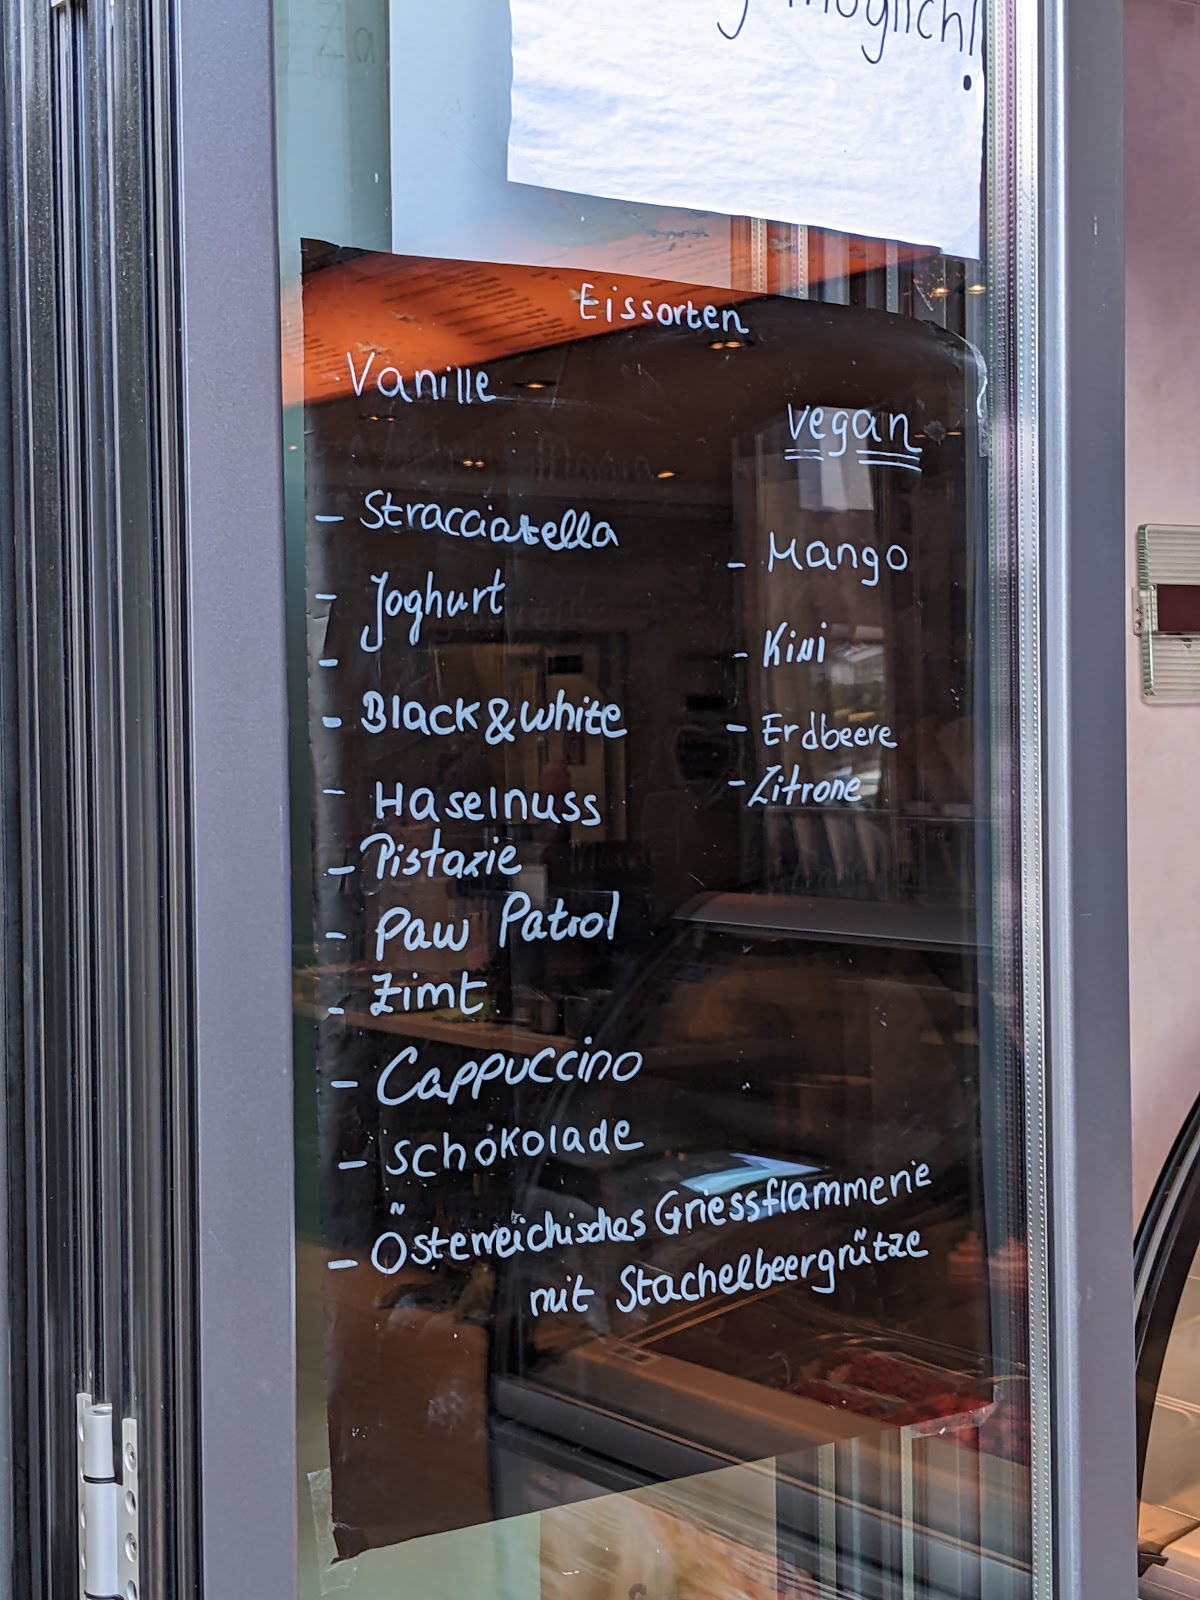 möglich!
Eissorten
Vanille
- Stracciatella
- Joghurt
-
- Black & White
- Haselnuss
- Pistazie
- Paw Patrol
- Zimt
- Cappuccino
- Schokolade
- Österreichisches Griessflammerie
mit Stachelbeergrütze
vegan
- Mango
- Kiwi
- Erdbeere
- Zitrone